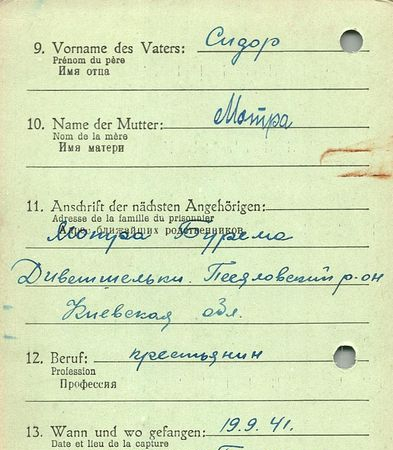 9. Vorname des Vaters: Сидор
Prénom du père
Имя отца
10. Name der Mutter: Мотра
Nom de la mère
Имя матери
11. Anschrift der nächsten Angehörigen:
Adresse de la famille du prisonnier
Адрес ближайших родственников
Мотра Бурема
р-он
Киевская обл.
12. Beruf: крестьянин
Profession
Профессия
13. Wann und wo gefangen: 19.9.41.
Date et lieu de la capture